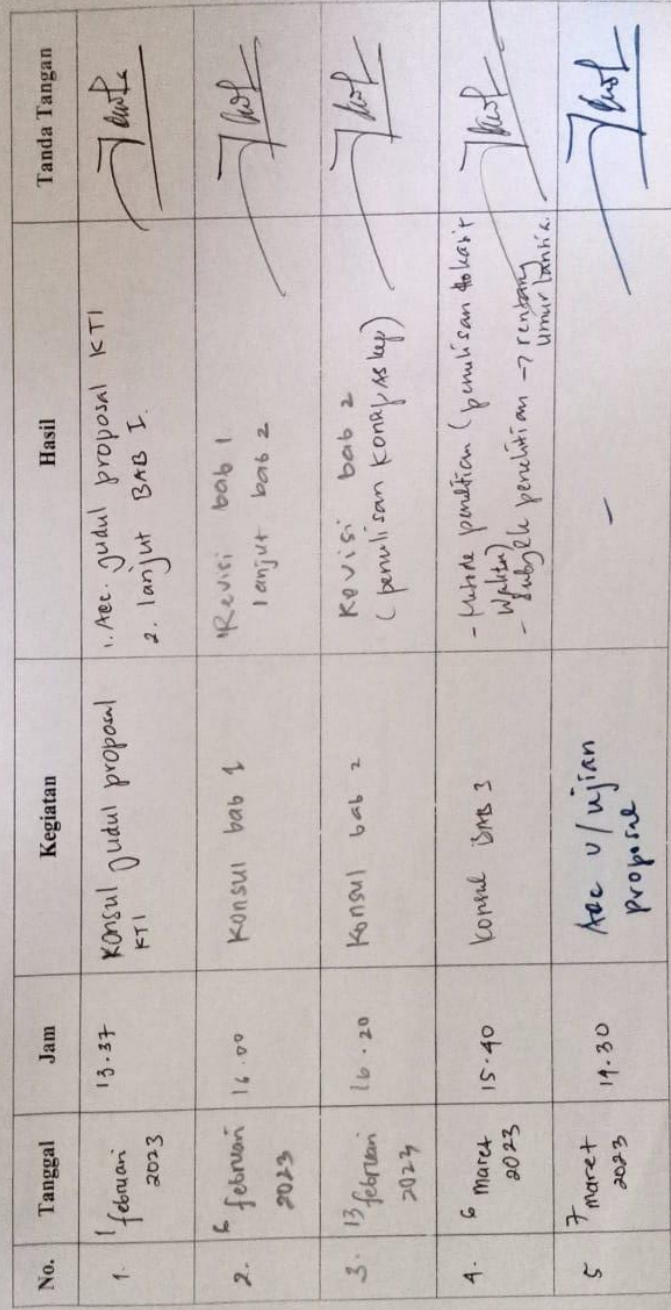 No. Tanggal Jam Kegiatan Hasil Tanda Tangan
1. 1 februari 13.37 Konsul judul proposal 1. Acc. judul proposal KTI
2023 KTI 2. lanjut BAB I.
2. 6 februari 16.00 Konsul bab 1 Revisi bab 1
2023 lanjut bab 2
3. 13 februari 16.20 Konsul bab 2 Revisi bab 2
2023 (penulisan konsep askep)
4. 6 maret 15.40 konsul BAB 3 - Metode penelitian (penulisan
2023
- Subyek penelitian → rentang
umur lansia.
5 7 maret Acc u/ ujian -
2023 proposal